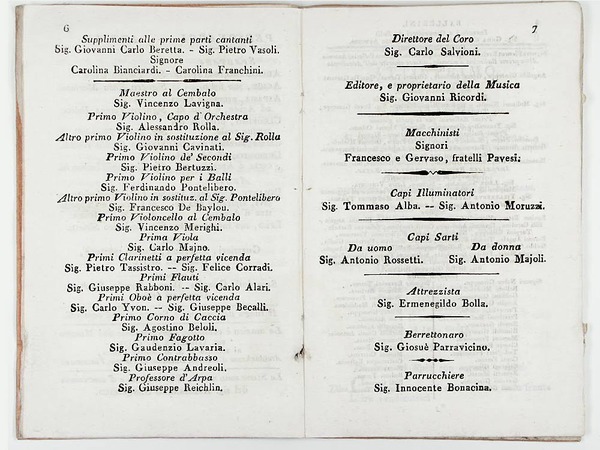 6
Supplimenti alle prime parti cantanti
Sig. Giovanni Carlo Beretta. - Sig. Pietro Vasoli.
Signore
Carolina Bianciardi. - Carolina Franchini.
Maestro al Cembalo
Sig. Vincenzo Lavigna.
Primo Violino, Capo d'Orchestra
Sig. Alessandro Rolla.
Altro primo Violino in sostituzione al Sig. Rolla
Sig. Giovanni Cavinati.
Primo Violino de' Secondi
Sig. Pietro Bertuzzi.
Primo Violino per i Balli
Sig. Ferdinando Pontelibero.
Altro primo Violino in sostituz. al Sig. Pontelibero
Sig. Francesco De Baylou.
Primo Violoncello al Cembalo
Sig. Vincenzo Merighi.
Prima Viola
Sig. Carlo Majno.
Primi Clarinetti a perfetta vicenda
Sig. Pietro Tassistro. -- Sig. Felice Corradi.
Primi Flauti
Sig. Giuseppe Rabboni. -- Sig. Carlo Alari.
Primi Oboè a perfetta vicenda
Sig. Carlo Yvon. -- Sig. Giuseppe Becalli.
Primo Corno di Caccia
Sig. Agostino Beloli.
Primo Fagotto
Sig. Gaudenzio Lavaria.
Primo Contrabbasso
Sig. Giuseppe Andreoli.
Professore d'Arpa
Sig. Giuseppe Reichlin.
7
Direttore del Coro
Sig. Carlo Salvioni.
Editore, e proprietario della Musica
Sig. Giovanni Ricordi.
Macchinisti
Signori
Francesco e Gervaso, fratelli Pavesi.
Capi Illuminatori
Sig. Tommaso Alba. -- Sig. Antonio Moruzzi.
Capi Sarti
Da uomo Da donna
Sig. Antonio Rossetti. Sig. Antonio Majoli.
Attrezzista
Sig. Ermenegildo Bolla.
Berrettonaro
Sig. Giosuè Parravicino.
Parrucchiere
Sig. Innocente Bonacina.